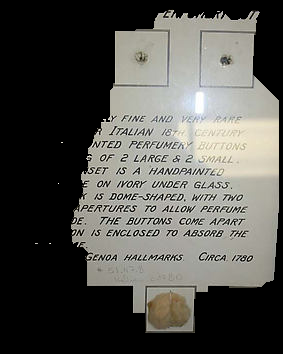 LY FINE AND VERY RARE
ITALIAN 18TH CENTURY
NTED PERFUMERY BUTTONS
G OF 2 LARGE & 2 SMALL.
SET IS A HANDPAINTED
E ON IVORY UNDER GLASS.
K IS DOME-SHAPED, WITH TWO
APERTURES TO ALLOW PERFUME
DE. THE BUTTONS COME APART
ON IS ENCLOSED TO ABSORB THE
GENOA HALLMARKS. CIRCA. 1780